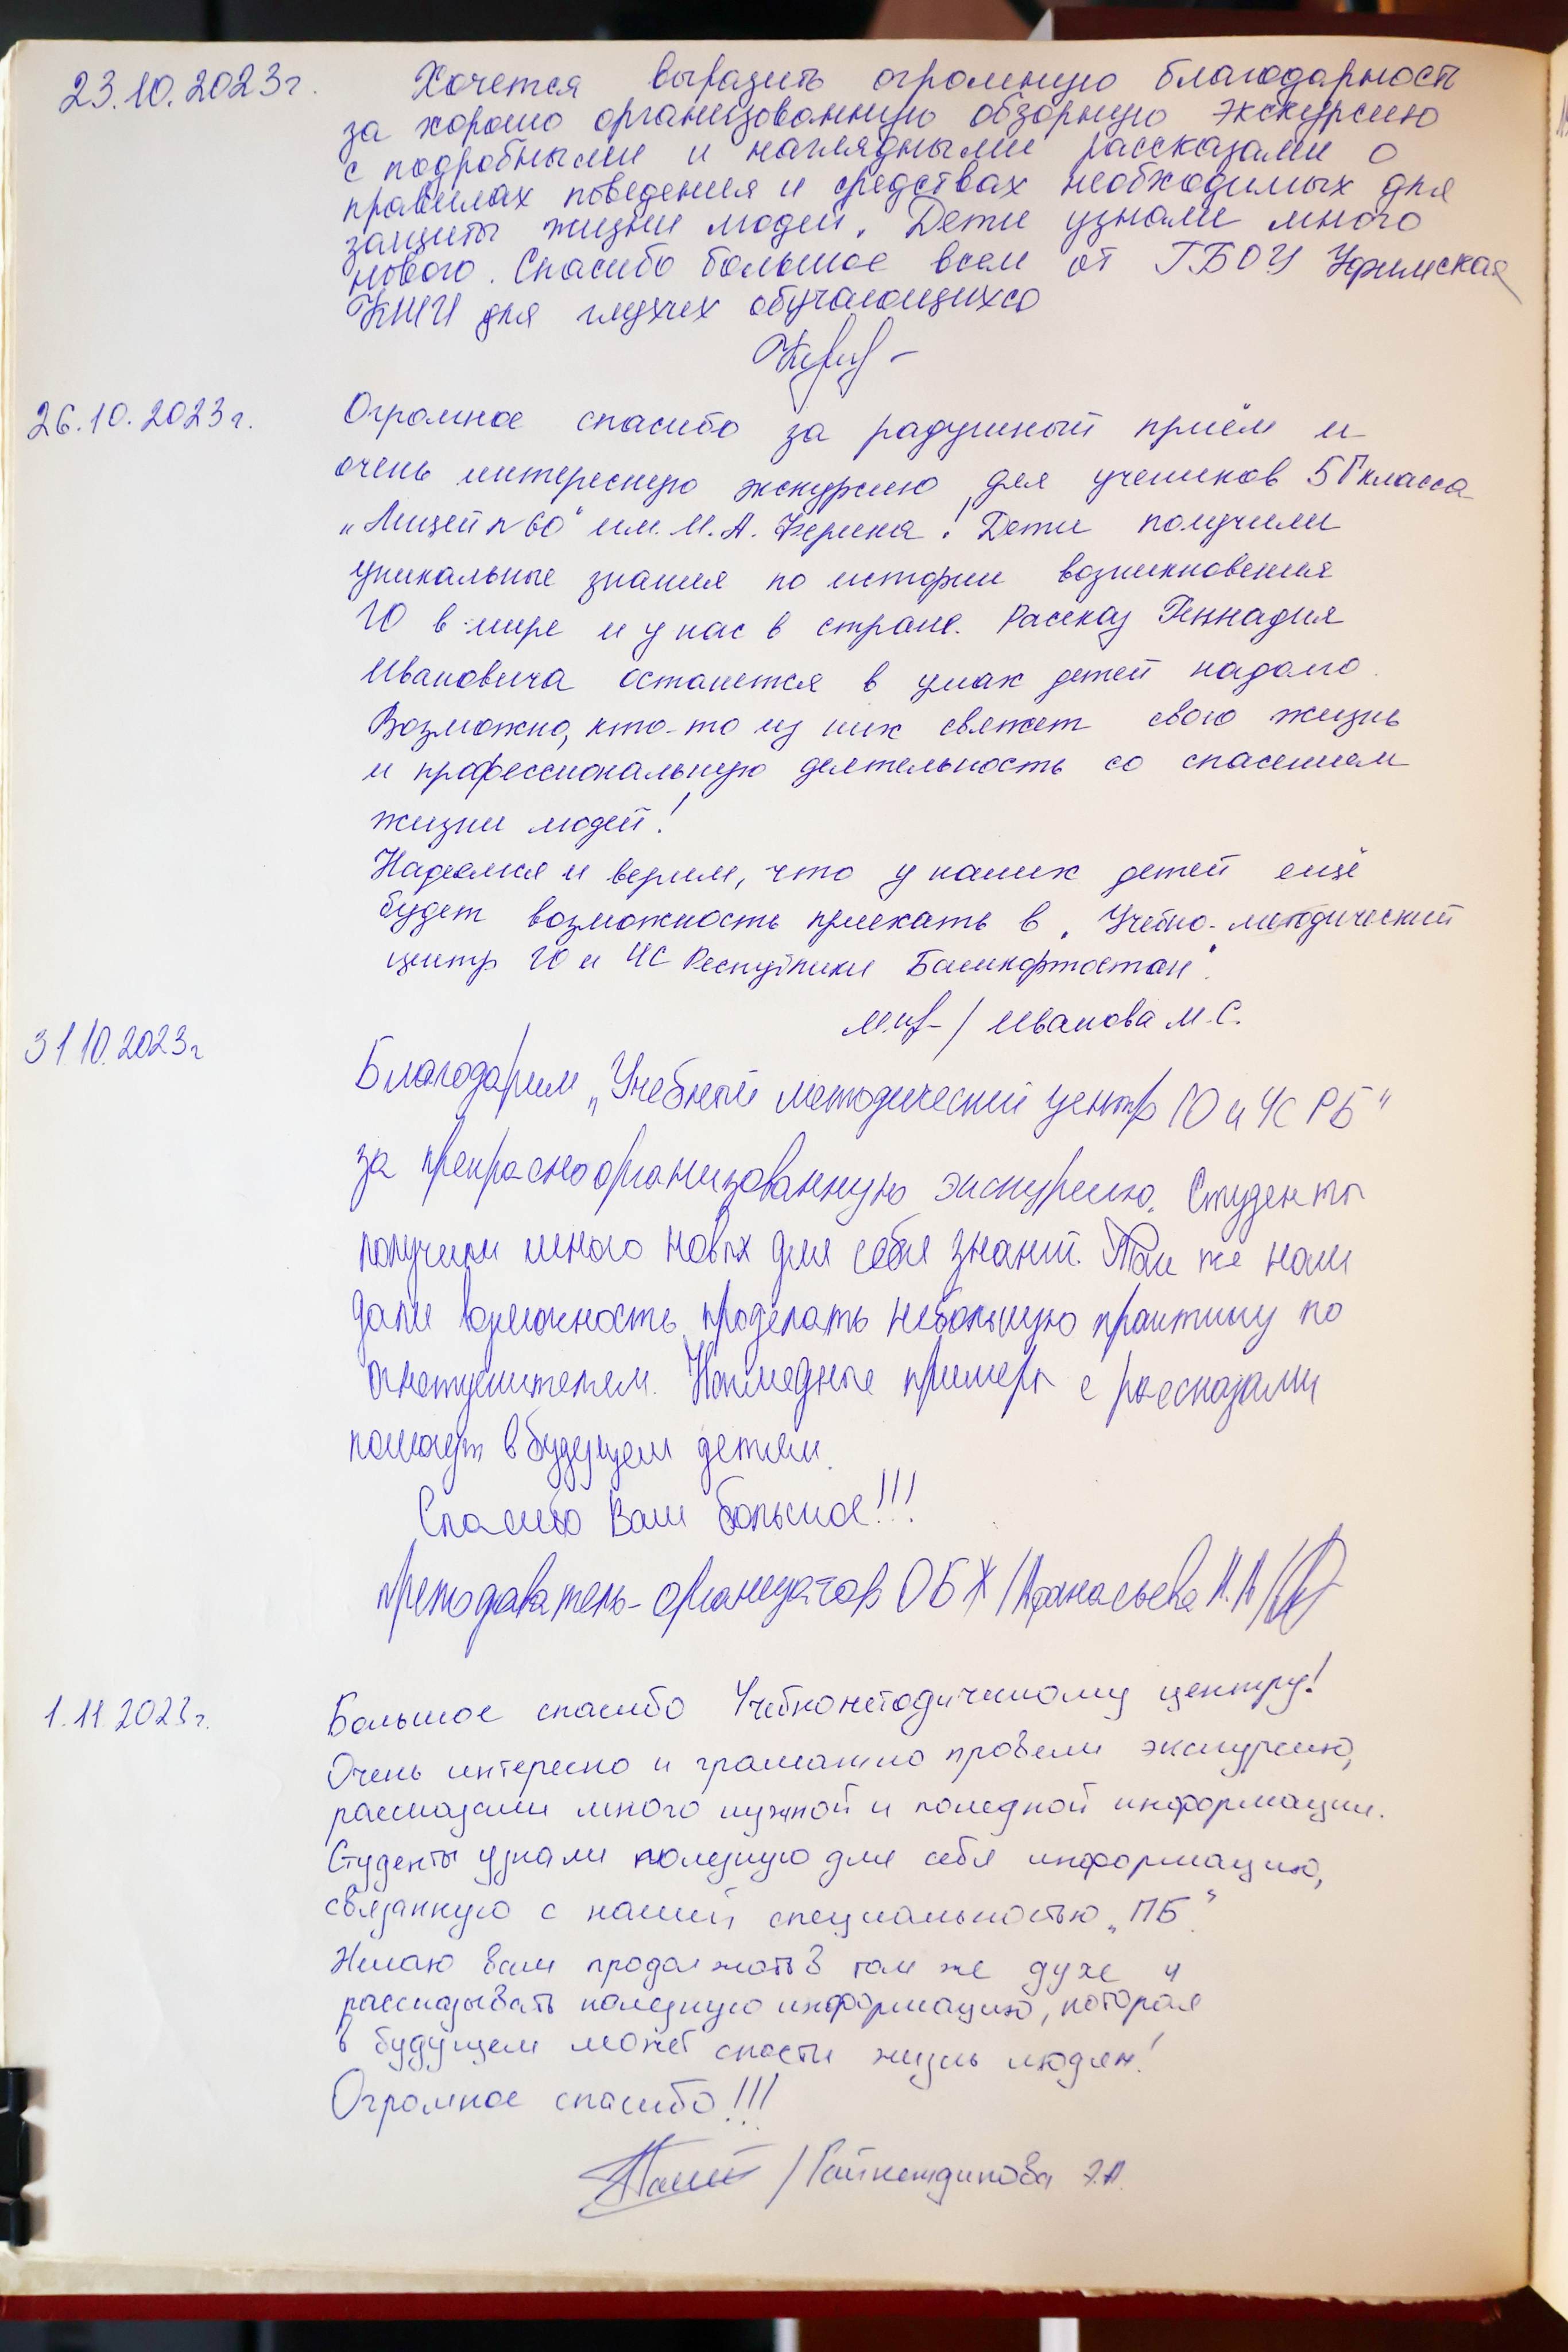 23.10.2023г. Хочется выразить огромную благодарность
за хорошо организованную обзорную экскурсию
с подробными и наглядными рассказами о
правилах поведения и средствах необходимых для
защиты жизни людей. Дети узнали много
нового. Спасибо большое всем от ГБОУ Уфимская
КШИ для глухих обучающихся
26.10.2023г. Огромное спасибо за радушный приём и
очень интересную экскурсию для учеников 5Г класса
„Лицей №60" им. М.А. Ферина! Дети получили
уникальные знания по истории возникновения
ГО в мире и у нас в стране. Рассказ Геннадия
Ивановича останется в умах детей надолго.
Возможно, кто-то из них свяжет свою жизнь
и профессиональную деятельность со спасением
жизни людей!
Надеемся и верим, что у наших детей ещё
будет возможность приехать в „Учебно-методический
центр ГО и ЧС Республики Башкортостан".
/ Иванова М.С.
31.10.2023г Благодарим „Учебный методический центр ГО и ЧС РБ"
за прекрасно организованную экскурсию. Студенты
получили много новых для себя знаний. Так же нам
дали возможность проделать небольшую практику по
огнетушителям. Наглядные примеры с рассказами
помогут в будущем детям.
Спасибо Вам большое!!!
Преподаватель-организатор ОБЖ /Афанасьева Н.А/
1.11.2023г. Большое спасибо Учебнометодическому центру!
Очень интересно и грамотно провели экскурсию,
рассказали много нужной и полезной информации.
Студенты узнали полезную для себя информацию,
связанную с нашей специальностью „ПБ".
Желаю вам продолжать в том же духе и
рассказывать полезную информацию, которая
в будущем может спасти жизнь людям!
Огромное спасибо!!!